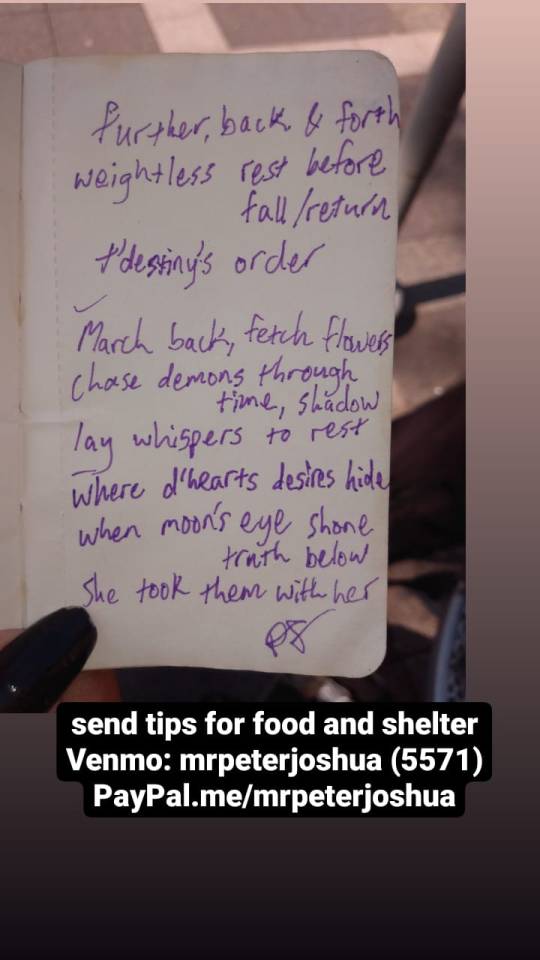 further, back & forth
weightless rest before
fall/return
t'destiny's order
March back, fetch flowers
chase demons through
time, shadow
lay whispers to rest
where d'hearts desires hide
when moon's eye shone
truth below
She took them with her
send tips for food and shelter
Venmo: mrpeterjoshua (5571)
PayPal.me/mrpeterjoshua